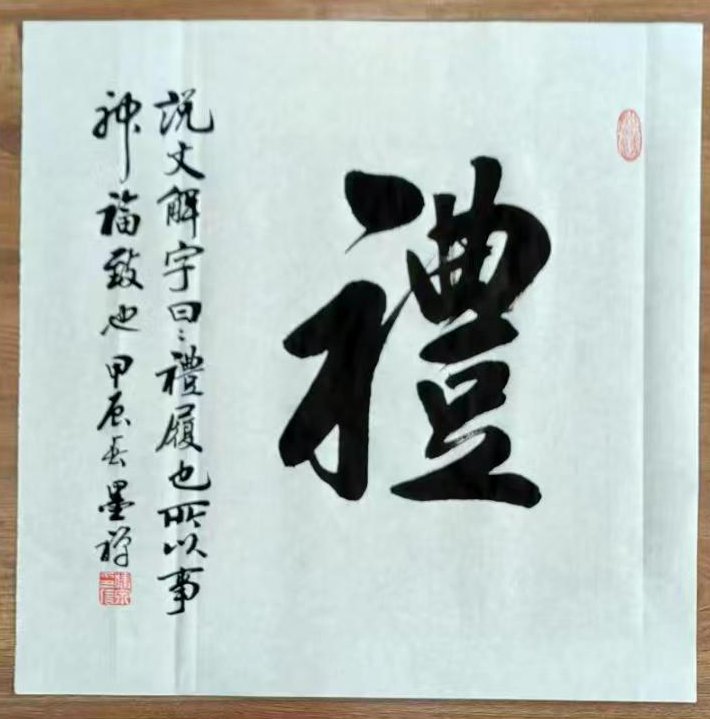 禮
説文解字曰：禮履也所以事
神福致也甲辰墨禪